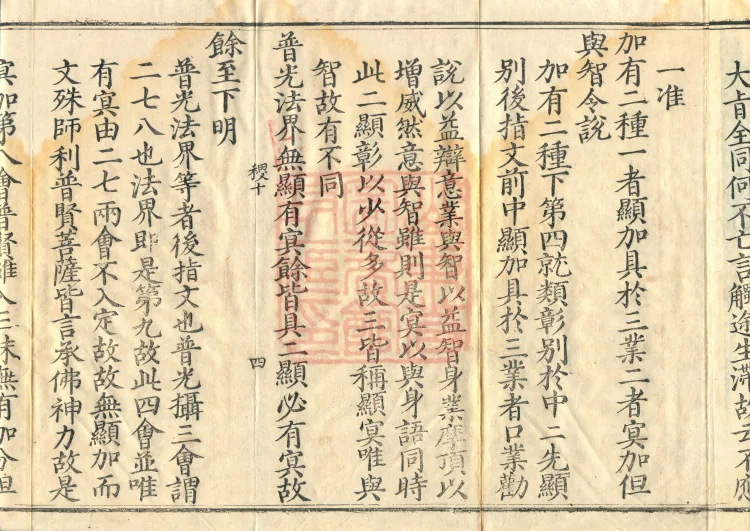 大旨全同何不亡言觸途生滯故云不應
一准
加有二種一者顯加具於三業二者冥加但
與智令說
加有二種下第四就類彰別於中二先顯
別後指文前中顯加具於三業者口業勸
說以益辯意業與智以益智身業摩頂以
增威然意與智雖則是冥以與身語同時
此二顯彰以少從多故三皆稱顯冥唯與
智故有不同
普光法界無顯有冥餘皆具二顯必有冥故
稷十
四
餘至下明
普光法界等者後指文也普光攝三會謂
二七八也法界即是第九故此四會並唯
有冥由二七兩會不入定故故無顯加而
文殊師利普賢菩薩皆言承佛神力故是
冥加第八會普賢雖入三昧無有加分但